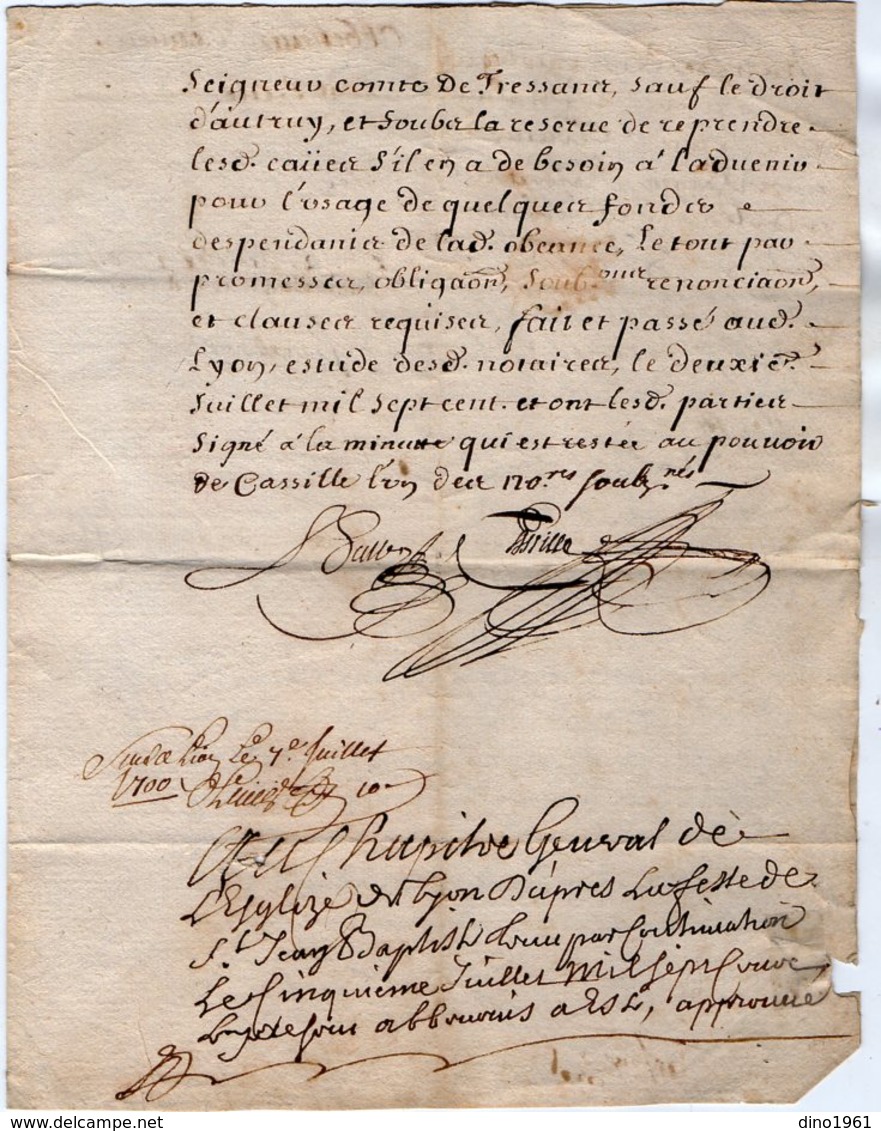 Seigneur comte De Tressanes, sauf le droit
d'autruy, et soubz la reserve de reprendre
lesd. caües s'il en a de besoin à l'advenir
pour l'usage de quelques fondz
despendantz de lad. obeance, Le tout par
promesses, obligaon, soub.ons renonciaon,
et clauses requises, fait et passé aud.
Lyon, estude desd. notaires, le deuxie.
Juillet mil sept cent. et ont lesd. parties
signé à la minutte qui est restée au pouvoir
de Cassille l'un des no.res soubz.nés
Cassille
Lion Le 7.e Juillet
1700
Au Chapitre General de
L'Esglize de Lyon D'apres La feste de
S.t Jean Baptiste tenu par Continuation
Le Cinquieme Juillet Mil sept Cens
a Esté, approuvé
dino1961